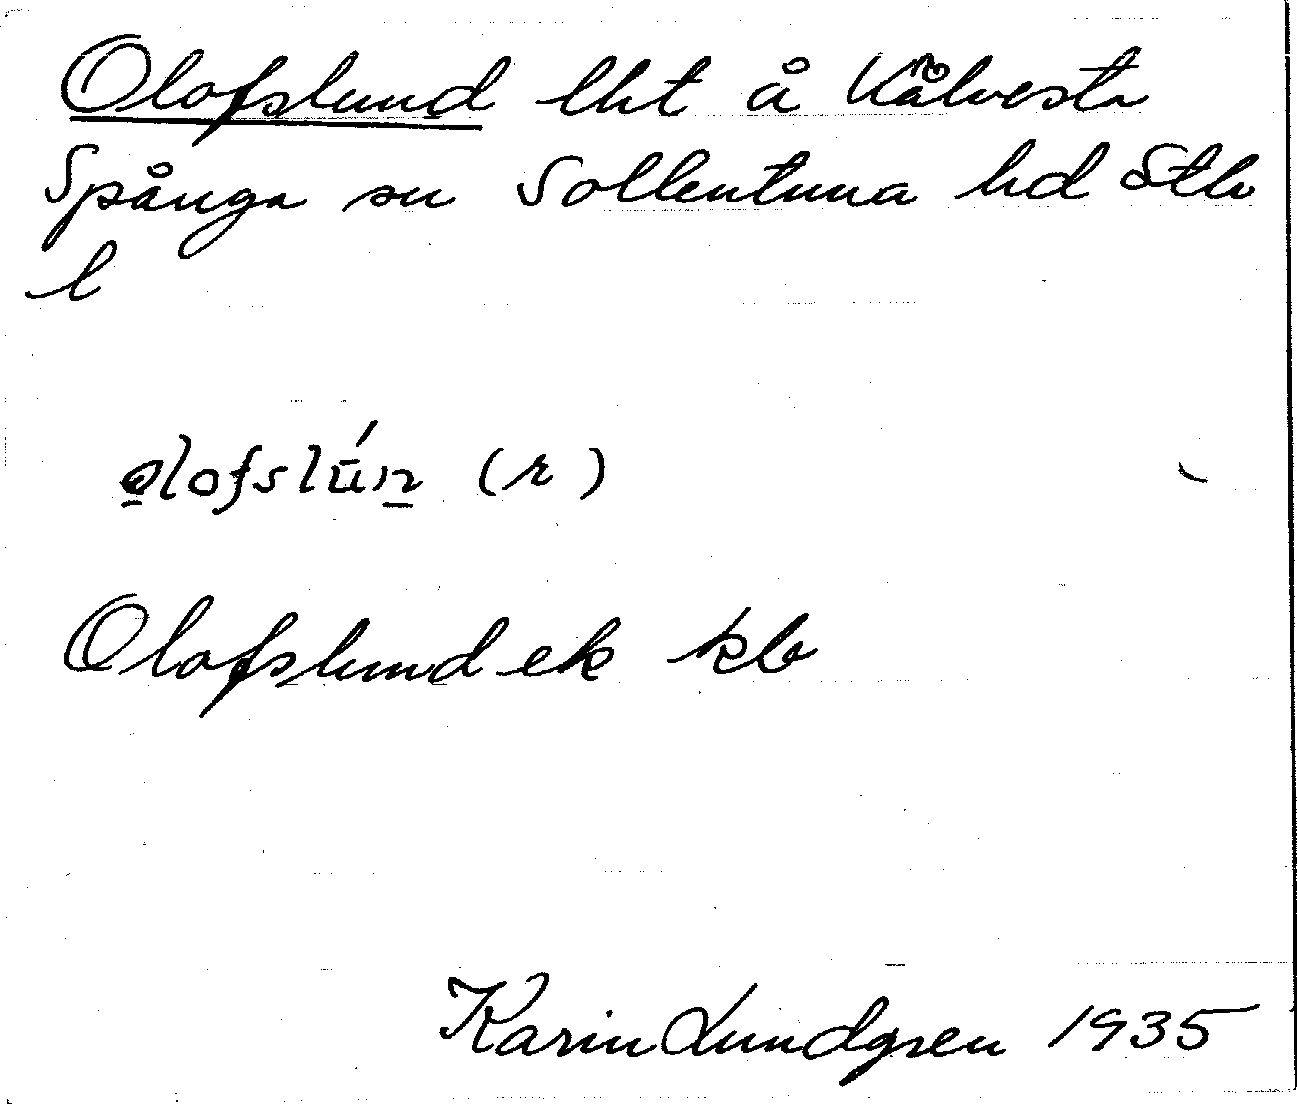 Olofslund lht å Kålvesta
Spånga sn Sollentuna hd Sthlm
l
olofslún (r)
Olofslund ek kb
Karin Lundgren 1935